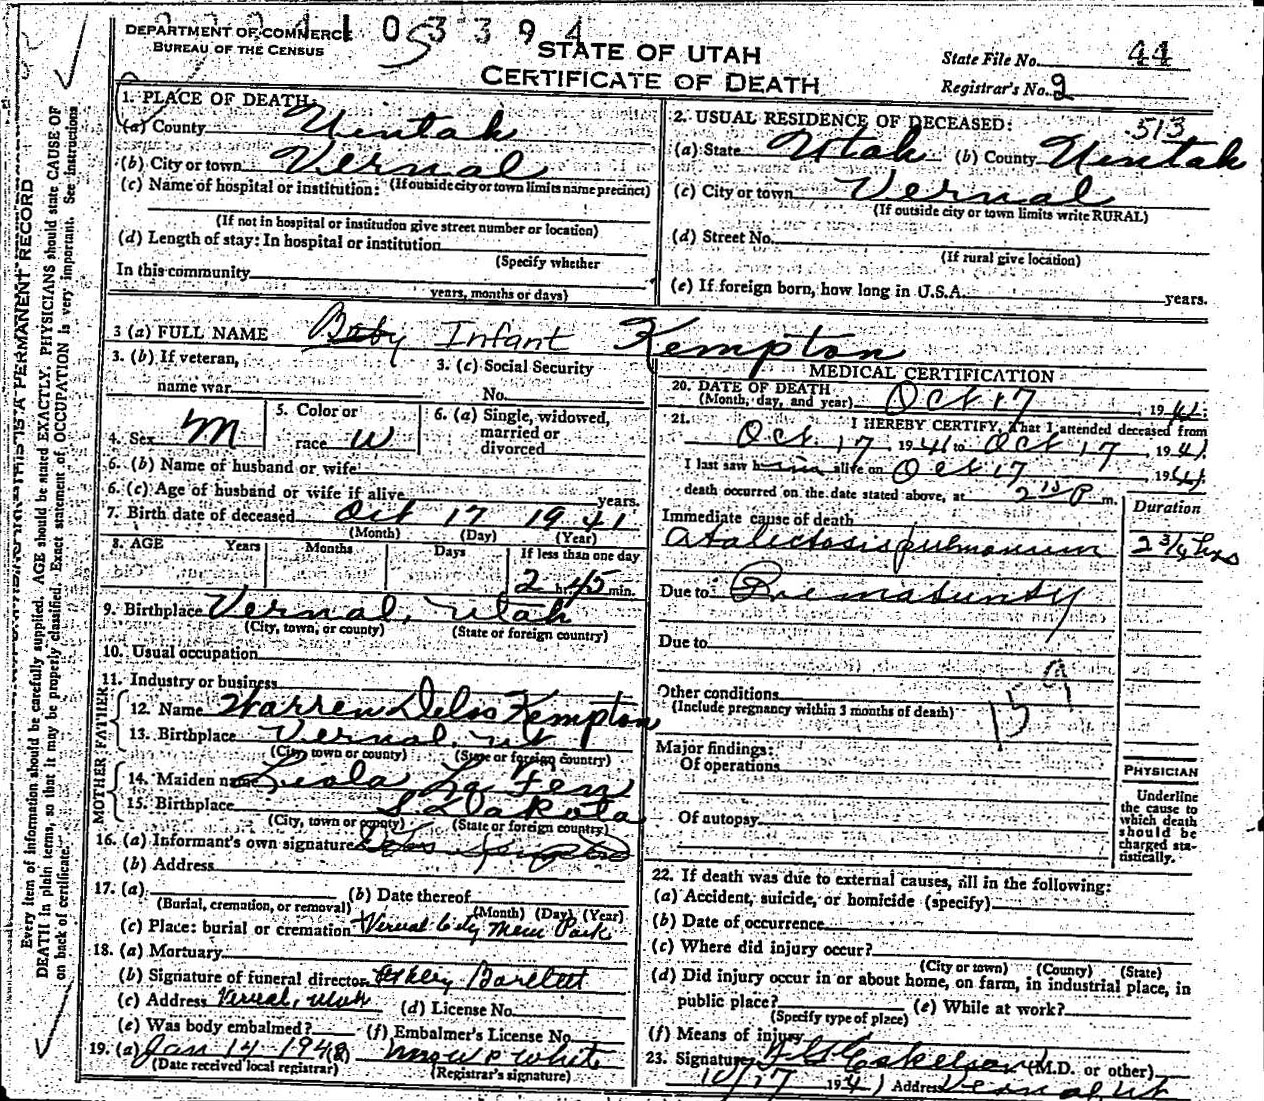 DEPARTMENT OF COMMERCE
BUREAU OF THE CENSUS
1 0 5 3 3 9 4
STATE OF UTAH
CERTIFICATE OF DEATH
State File No. 44
Registrar's No. 2
Every item of information should be carefully supplied. AGE should be stated EXACTLY. PHYSICIANS should state CAUSE OF
DEATH in plain terms, so that it may be properly classified. Exact statement of OCCUPATION is very important. See instructions
on back of certificate.
THIS IS A PERMANENT RECORD
1. PLACE OF DEATH:
(a) County Uintah
(b) City or town Vernal
(If outside city or town limits name precinct)
(c) Name of hospital or institution:
(If not in hospital or institution give street number or location)
(d) Length of stay: In hospital or institution
(Specify whether
In this community
years, months or days)
2. USUAL RESIDENCE OF DECEASED: 513
(a) State Utah (b) County Uintah
(c) City or town Vernal
(If outside city or town limits write RURAL)
(d) Street No.
(If rural give location)
(e) If foreign born, how long in U.S.A. years.
3 (a) FULL NAME Baby Infant Kempton
3. (b) If veteran,
name war
3. (c) Social Security
No.
4. Sex M
5. Color or
race W
6. (a) Single, widowed,
married or
divorced
6. (b) Name of husband or wife
6. (c) Age of husband or wife if alive years.
7. Birth date of deceased Oct 17 1941
(Month) (Day) (Year)
8. AGE Years Months Days If less than one day
2 hr. 45 min.
9. Birthplace Vernal, Utah
(City, town, or county) (State or foreign country)
10. Usual occupation
11. Industry or business
FATHER
12. Name Warren Delos Kempton
13. Birthplace Vernal, Ut
(City, town or county) (State or foreign country)
MOTHER
14. Maiden name Leola La Fen
15. Birthplace S Dakota
(City, town or county) (State or foreign country)
16. (a) Informant's own signature Delos Kempton
(b) Address
17. (a) (b) Date thereof
(Burial, cremation, or removal) (Month) (Day) (Year)
(c) Place: burial or cremation Vernal City Mem Park
18. (a) Mortuary
(b) Signature of funeral director Ashley Bartlett
(c) Address Vernal, Utah (d) License No.
(e) Was body embalmed? (f) Embalmer's License No.
19. (a) Jan 14 1948 Mrs W P White
(Date received local registrar) (Registrar's signature)
MEDICAL CERTIFICATION
20. DATE OF DEATH
(Month, day, and year) Oct 17, 1941.
21. I HEREBY CERTIFY, That I attended deceased from
Oct. 17 1941 to Oct 17, 1941.
I last saw him alive on Oct 17 1941.
death occurred on the date stated above, at 2 15 P m.
Duration
Immediate cause of death
Atalectosis pulmonum 2 3/4 hrs
Due to: Prematurity
Due to
Other conditions
(Include pregnancy within 3 months of death)
159
Major findings:
Of operations
Of autopsy
PHYSICIAN
Underline
the cause to
which death
should be
charged sta-
tistically.
22. If death was due to external causes, fill in the following:
(a) Accident, suicide, or homicide (specify)
(b) Date of occurrence
(c) Where did injury occur?
(City or town) (County) (State)
(d) Did injury occur in or about home, on farm, in industrial place, in
public place? (e) While at work?
(Specify type of place)
(f) Means of injury
23. Signature Eskelson (M.D. or other)
10/17 1941 Address Vernal, Ut